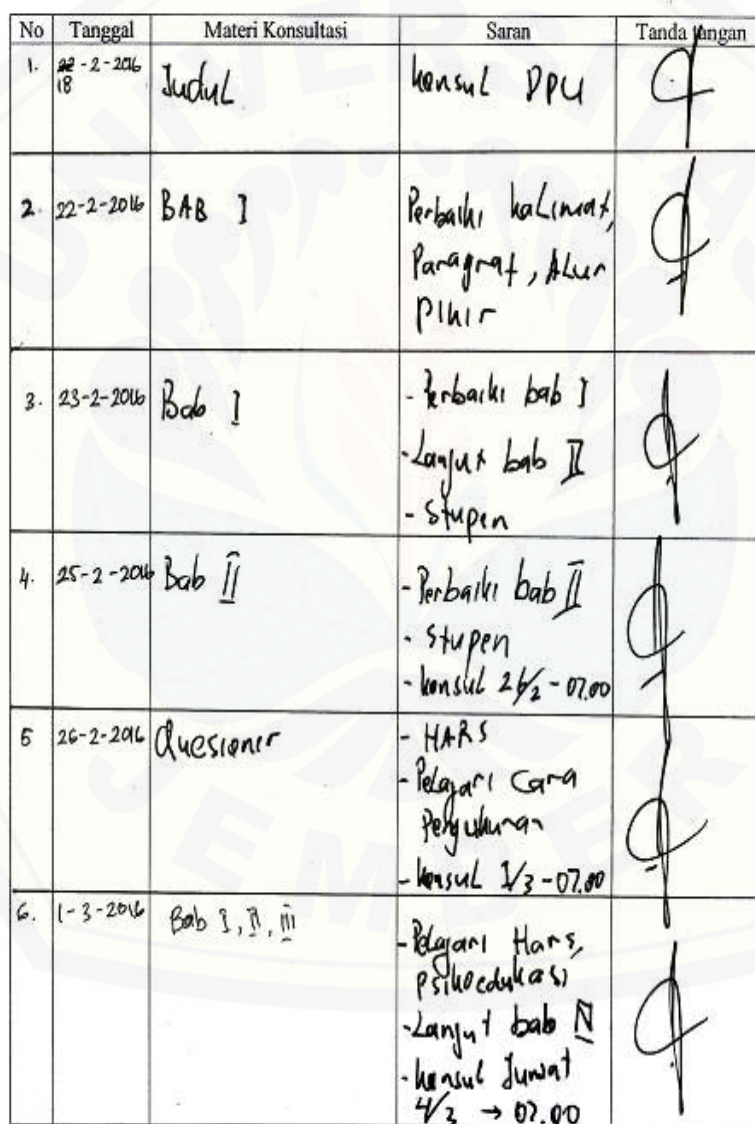 No Tanggal Materi Konsultasi Saran Tanda tangan
1. 18 -2-2016 Judul konsul DPU
2. 22-2-2016 BAB I Perbaiki kalimat,
Paragraf, Alur
Pikir
3. 23-2-2016 Bab I - Perbaiki bab I
- Lanjut bab II
- Stupen
4. 25-2-2016 Bab II - Perbaiki bab II
- Stupen
- konsul 26/2 - 07.00
5 26-2-2016 Quesionir - HARS
- Pelajari Cara
Pengukuran
- konsul 1/3 - 07.00
6. 1-3-2016 Bab I, II, III
- Pelajari Hars,
psikoedukasi
- Lanjut bab IV
- konsul Jumat
4/3 → 07.00
UNIVERSITAS
JEMBER